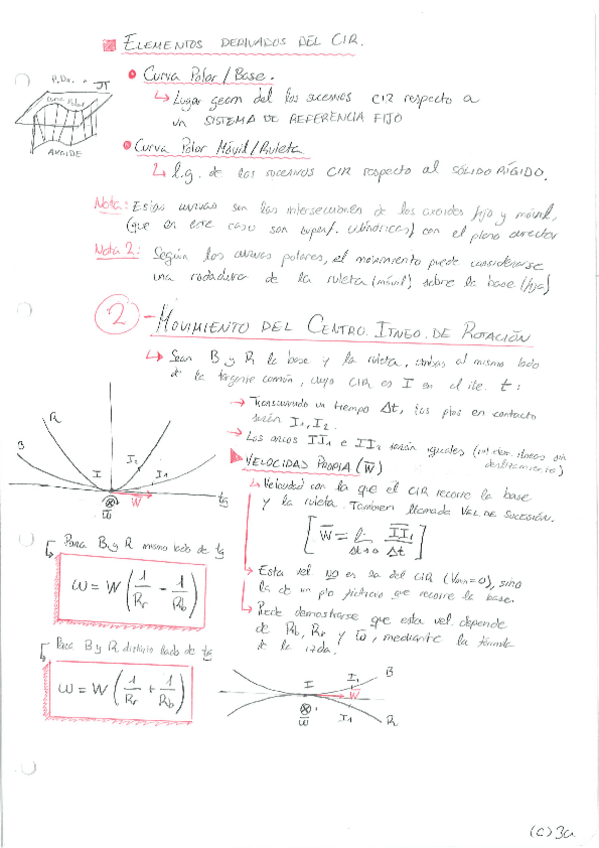 ELEMENTOS DERIVADOS DEL CIR.
P.Dir. π
Curva Polar
AXOIDE
Curva Polar / Base.
↳ Lugar geom del los sucesivos CIR respecto a
un SISTEMA DE REFERENCIA FIJO
Curva Polar Móvil / Ruleta
↳ l.g. de los sucesivos CIR respecto al SÓLIDO RÍGIDO.
Nota: Estas curvas son las intersecciones de los axoides fijo y móvil,
(que en este caso son superf. cilíndricas) con el plano director
Nota 2: Según las curvas polares, el movimiento puede considerarse
una rodadura de la ruleta (móvil) sobre la base (fija)
2 - MOVIMIENTO DEL CENTRO ITNEO. DE ROTACIÓN
↳ Sean B y R la base y la ruleta, ambas al mismo lado
de la tangente común, cuyo CIR es I en el ite. t:
→ Transcurrido un tiempo Δt, los ptos en contacto
serán I₁, I₂.
→ Los arcos II₁ e II₂ serán iguales
B R I I₂ I₁ W tg ω̄
VELOCIDAD PROPIA (W̄)
↳ Velocidad con la que el CIR recorre la base
y la ruleta. También llamada VEL. DE SUCESIÓN.
[W̄ = lim Δt→0 II₁/Δt]
→ Esta vel NO es la del CIR (VCIR=0), sino
la de un pto ficticio que recorre la base.
→ Puede demostrarse que esta vel. depende
de Rb, Rr y ω̄, mediante la fórmula
de la izda.
Para B y R mismo lado de tg
ω = W (1/Rr - 1/Rb)
Para B y R distinto lado de tg
ω = W (1/Rr + 1/Rb)
I I₁ B W̄ ω̄ I₁ R
(C) 3a